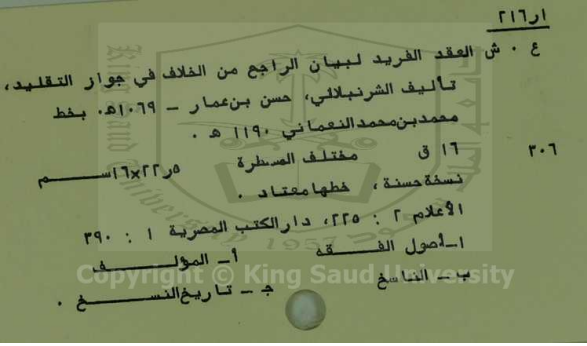 ٢١٦ر١
ع ٠ ش العقد الفريد لبيان الراجح من الخلاف في جواز التقليد،
تأليف الشرنبلالي، حسن بن عمار - ١٠٦٩هـ٠ بخط
محمد بن محمد النعماني ١١٩٠ هـ ٠
٣٠٦ ١٦ ق مختلف المسطرة ٥ر٢٢×١٦سم
نسخة حسنة، خطها معتاد ٠
الأعلام ٢ : ٢٢٥، دار الكتب المصرية ١ : ٣٩٠
١ـ أصول الفقه أ - المؤلف
ب - الناسخ ج - تاريخ النسخ ٠
King Saud University
1957
Copyright © King Saud University